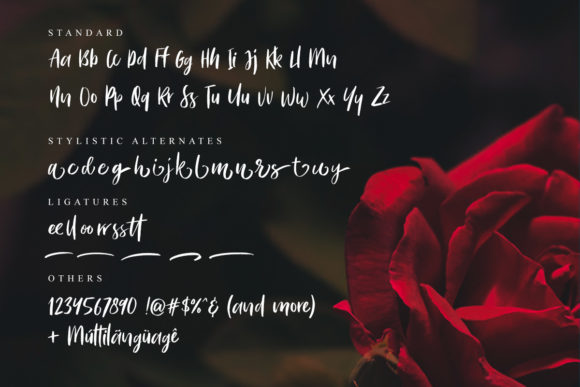 STANDARD
Aa Bb Cc Dd Ff Gg Hh Ii Jj Kk Ll Mm
Nn Oo Pp Qq Rr Ss Tt Uu Vv Ww Xx Yy Zz
STYLISTIC ALTERNATES
acdeghijklmnrstuwy
LIGATURES
ee ll oo rr ss tt
OTHERS
1234567890 !@#$%^& (and more)
+ Múltilängüagê